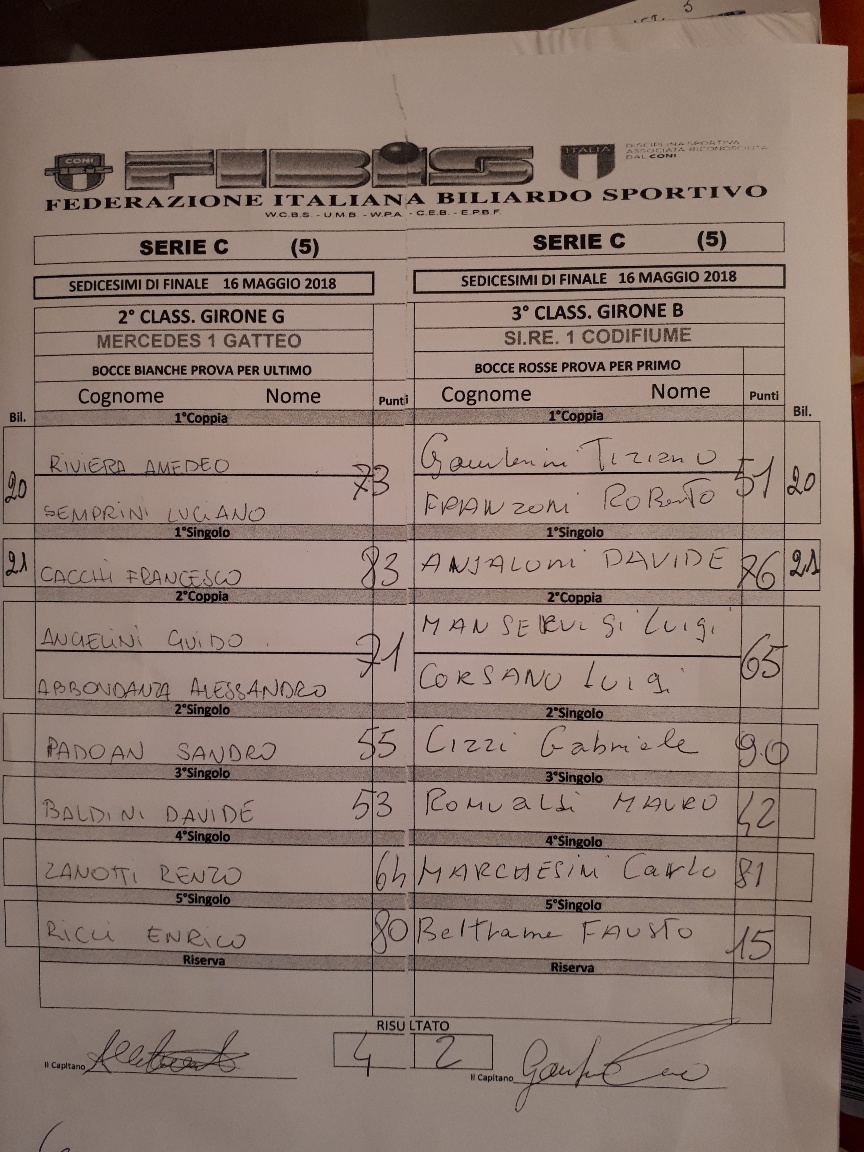 CONI FIBIS ITALIA DISCIPLINA SPORTIVA
ASSOCIATA RICONOSCIUTA
DAL CONI
FEDERAZIONE ITALIANA BILIARDO SPORTIVO
W.C.B.S. - U.M.B. - W.P.A. - C.E.B. - E.P.B.F.
SERIE C (5) SERIE C (5)
SEDICESIMI DI FINALE 16 MAGGIO 2018 SEDICESIMI DI FINALE 16 MAGGIO 2018
2° CLASS. GIRONE G 3° CLASS. GIRONE B
MERCEDES 1 GATTEO SI.RE. 1 CODIFIUME
BOCCE BIANCHE PROVA PER ULTIMO BOCCE ROSSE PROVA PER PRIMO
Cognome Nome Punti Cognome Nome Punti
Bil. 1°Coppia 1°Coppia Bil.
RIVIERA AMEDEO Gamberini Tiziano
20 73 51 20
SEMPRINI LUCIANO FRANZONI ROBERTO
1°Singolo 1°Singolo
21 CACCHI FRANCESCO 83 ANSALONI DAVIDE 76 21
2°Coppia 2°Coppia
ANGELINI GUIDO MANSERVIGI Luigi
71 65
ABBONDANZA ALESSANDRO CORSANO Luigi
2°Singolo 2°Singolo
PADOAN SANDRO 55 Cizzi Gabriele 90
3°Singolo 3°Singolo
BALDINI DAVIDE 53 ROMUALDI MAURO 42
4°Singolo 4°Singolo
ZANOTTI RENZO 64 MARCHESINI Carlo 81
5°Singolo 5°Singolo
RICCI ENRICO 80 Beltrame FAUSTO 15
Riserva Riserva
RISULTATO
Il Capitano 4 2 Il Capitano